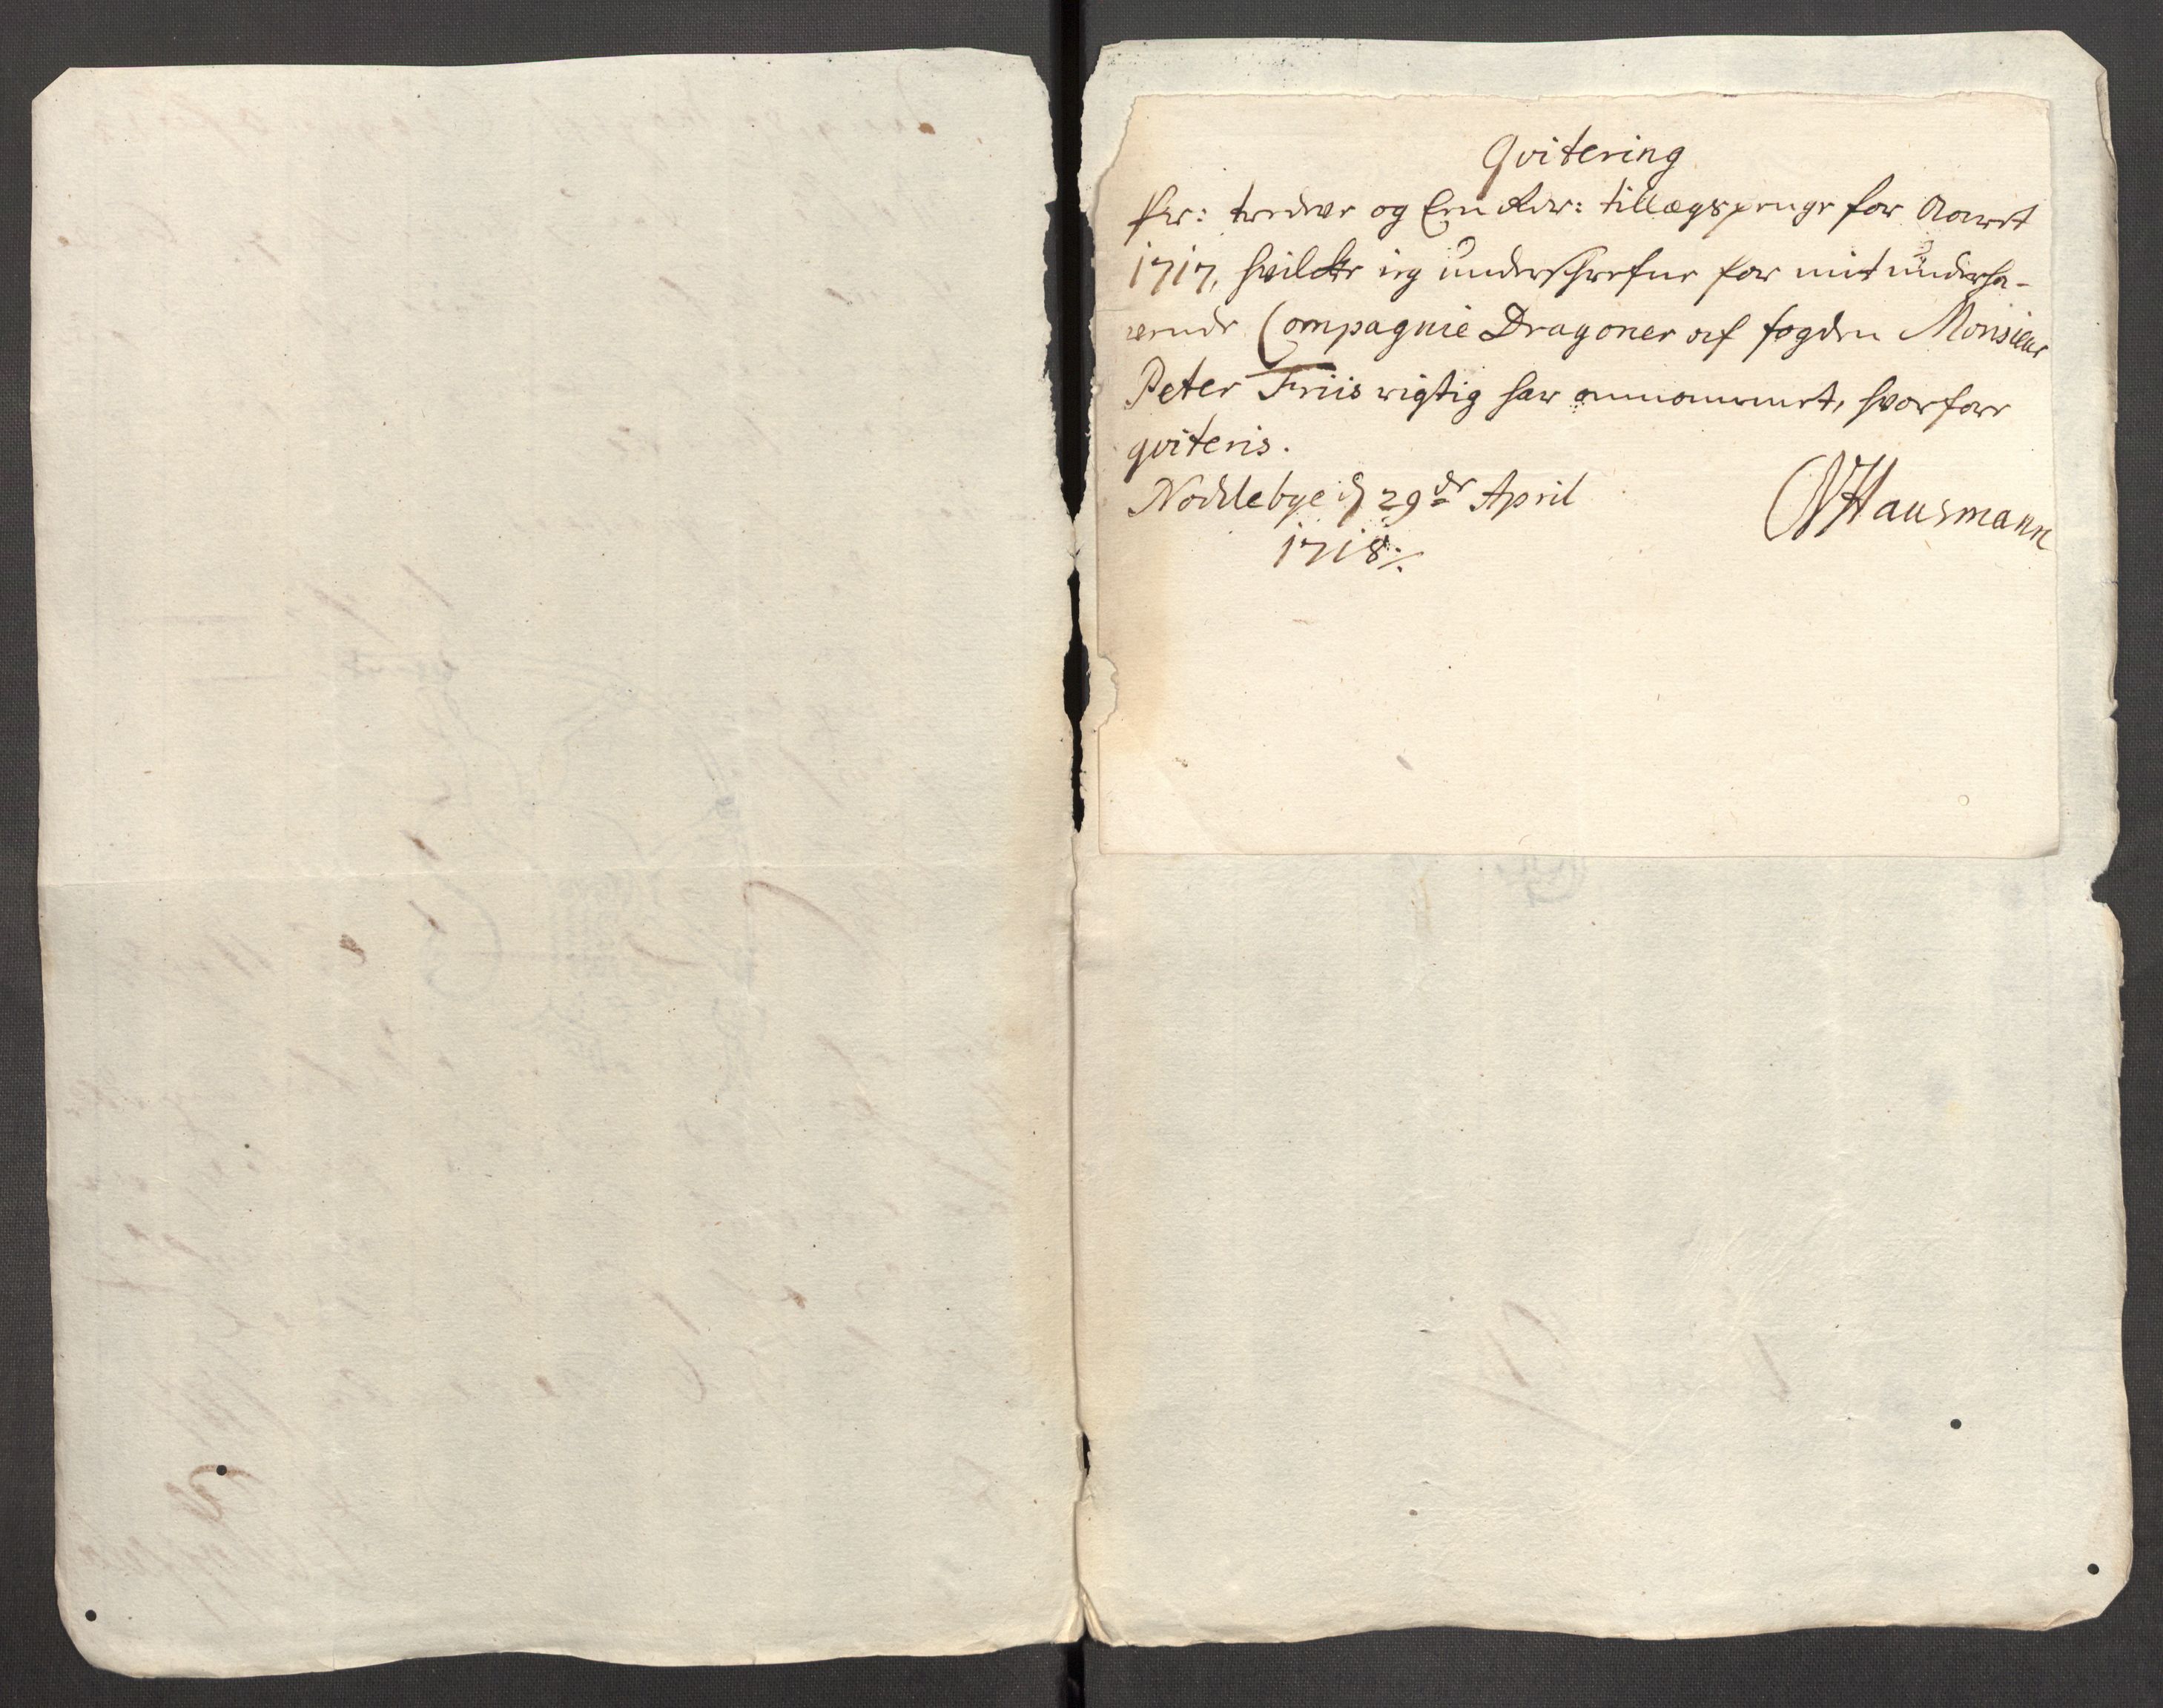 Qvitering
for: tredeve og Een Rdr: tillægspenge for Aaret
1717, hvilcke ieg underschrefne for mit underha-
vende Compagnie Dragoner af fogden Monsieur
Peter Friis rigtig har annammet, hvorfore
qviteris.
Nochlebye d 29de April
1718 ⁒
Hausmann